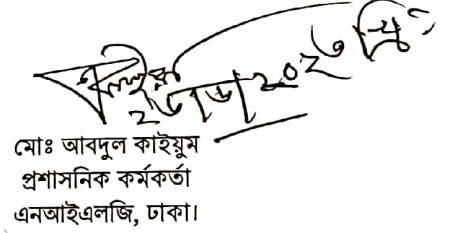 ২০২৩ খ্রিঃ
মোঃ আবদুল কাইয়ুম
প্রশাসনিক কর্মকর্তা
এনআইএলজি, ঢাকা।